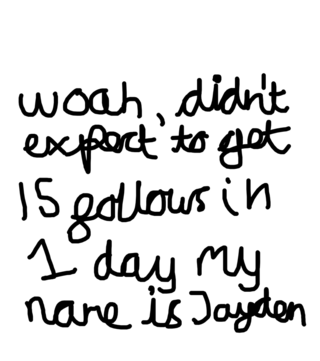 woah, didn't
expect to get
15 follows in
1 day my
name is Jayden